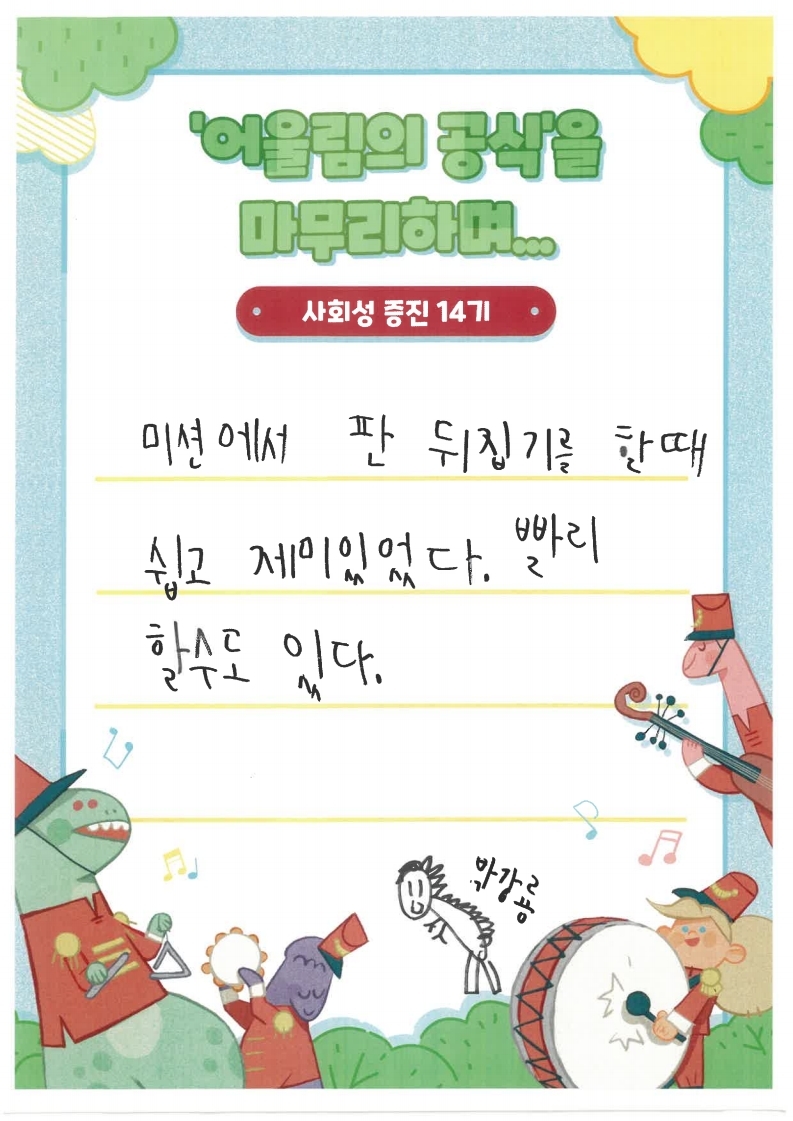 '어울림의 공식'을
마무리하며...
사회성 증진 14기
미션에서 판 뒤집기를 할때
쉽고 제미있었다. 빨리
할수도 있다.
박강룡